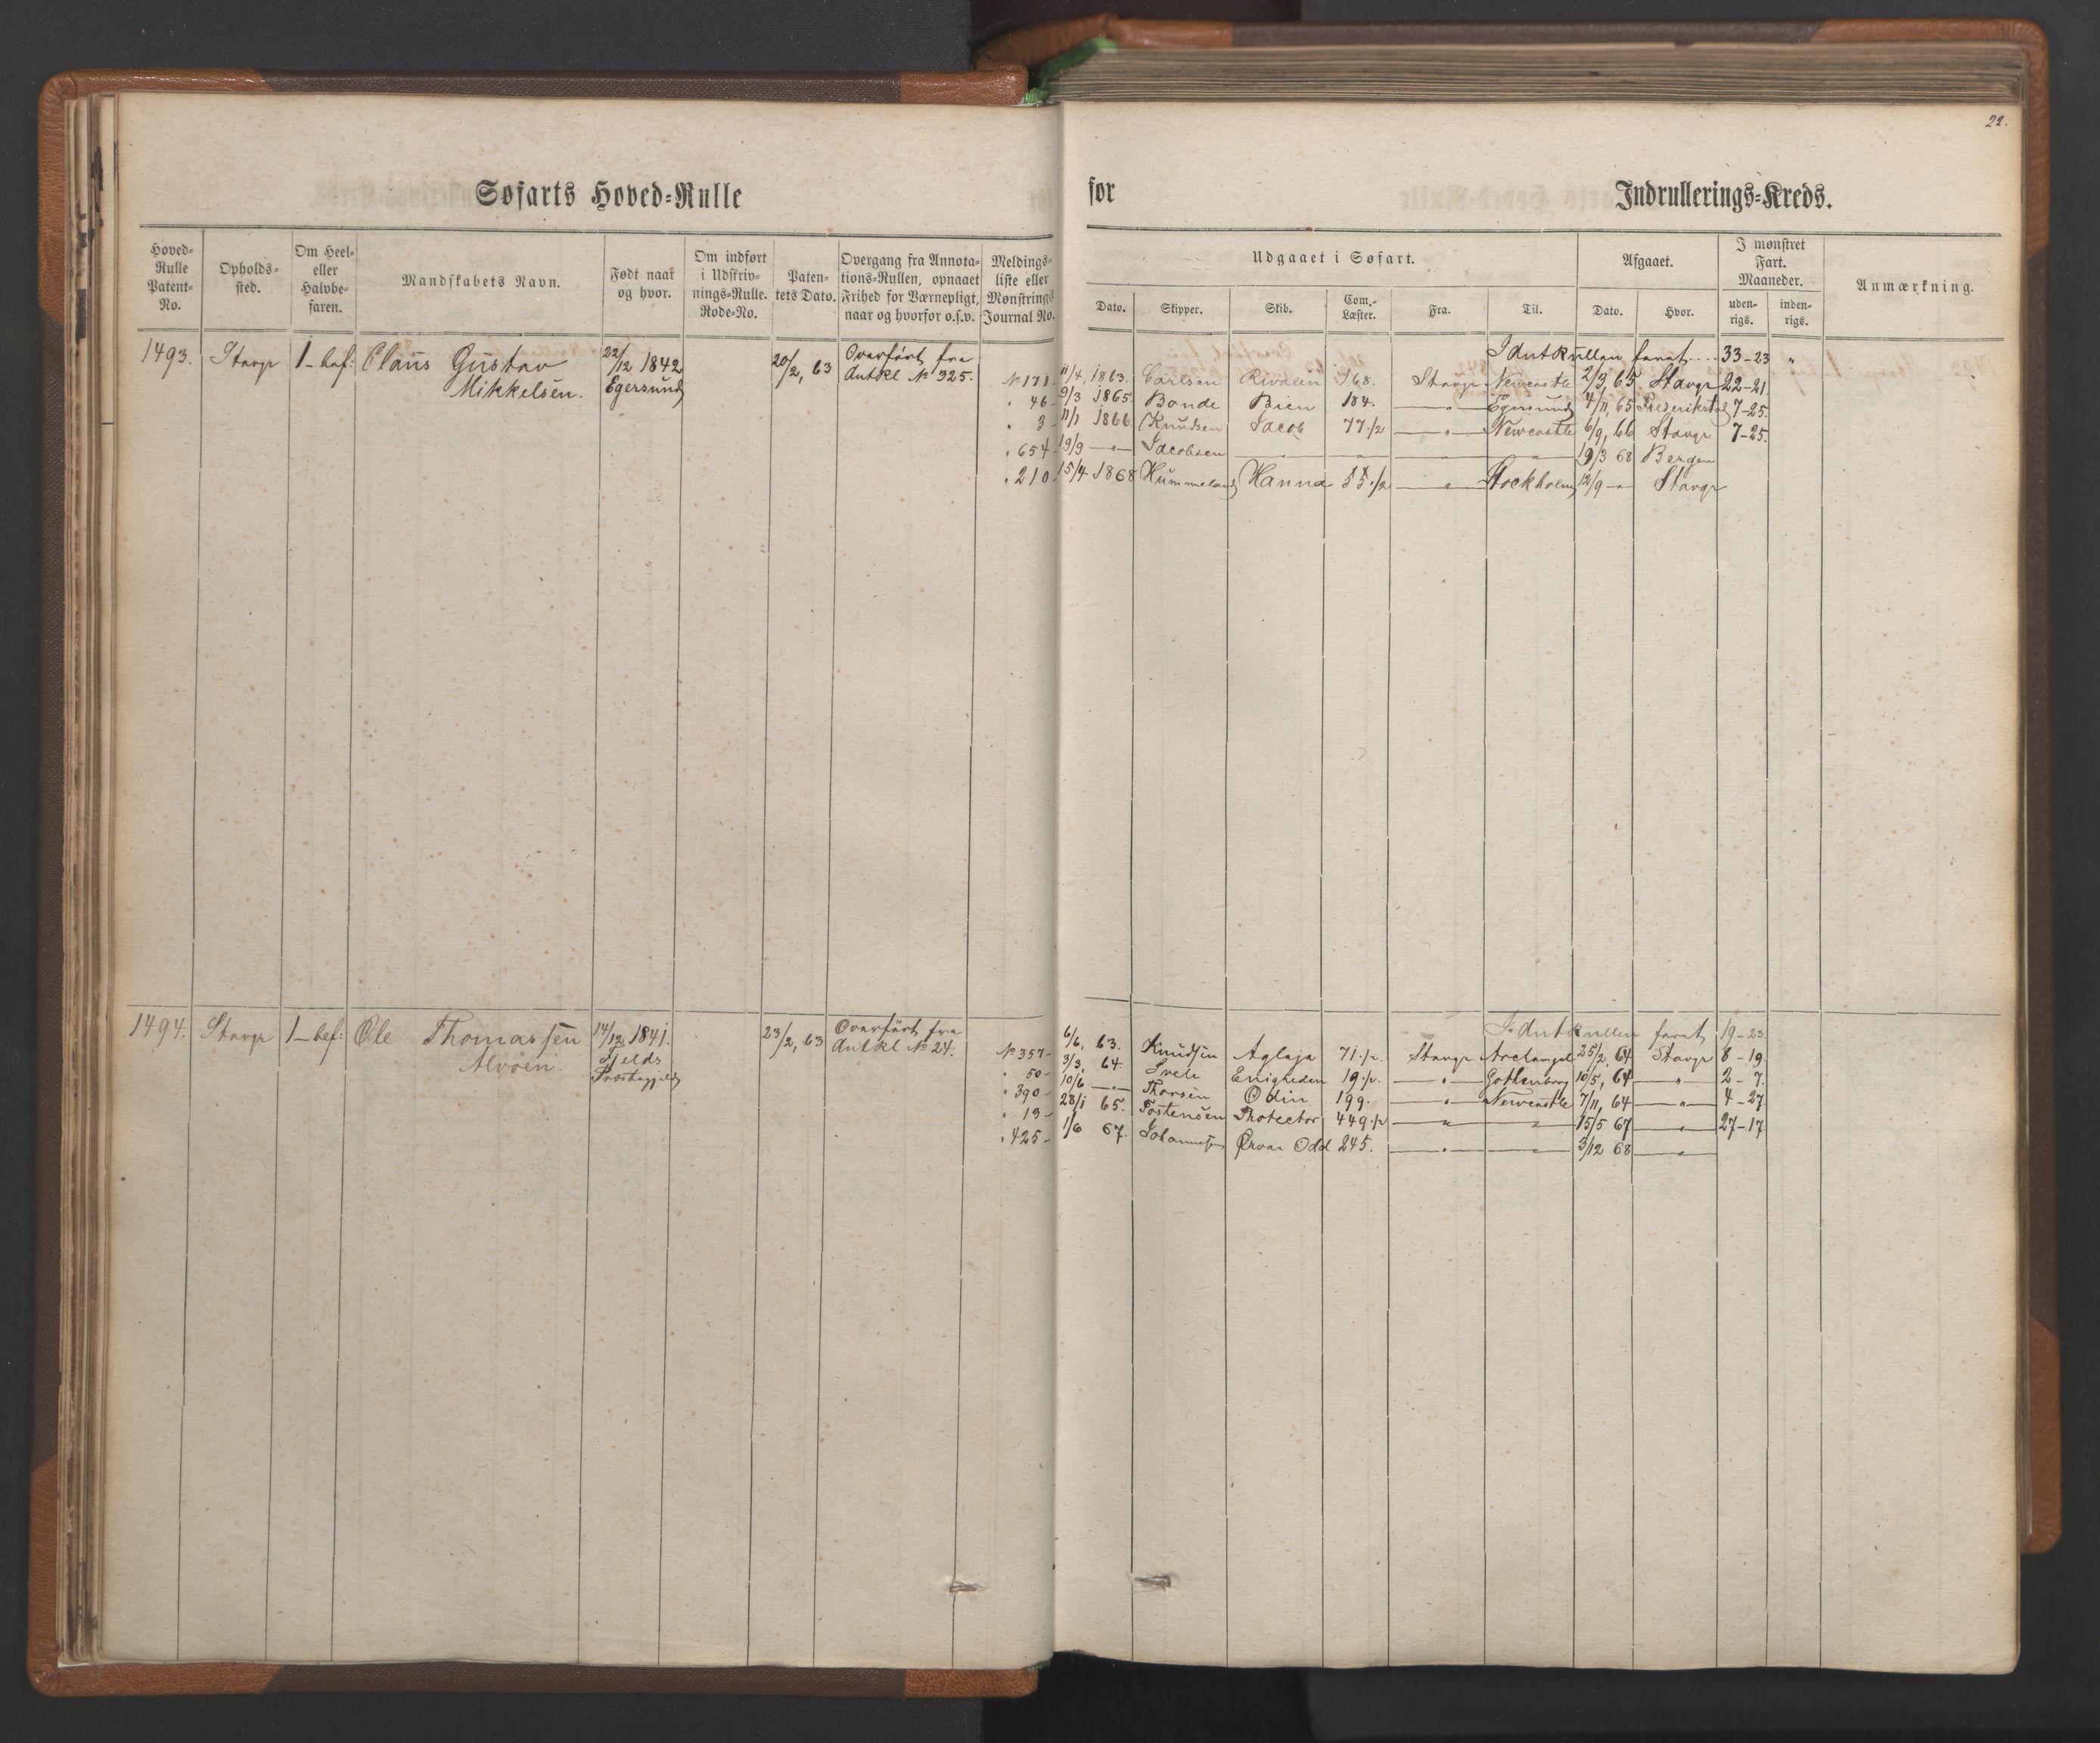 22.
Søfarts Hoved-Rulle for Indrullerings-Kreds.
Hoved-Rulle Patent-No.
Opholds-sted.
Om Heel- eller Halvbe-faren.
Mandskabets Navn.
Født naar og hvor.
Om indført i Udskriv-nings-Rulle. Rode-No.
Paten-tets Dato.
Overgang fra Annota-tions-Rullen, opnaaet Frihed for Værnepligt, naar og hvorfor o.s.v.
Meldings-liste eller Mønstrings Journal No.
Udgaaet i Søfart.
Dato. Skipper. Skib. Com.-Læster. Fra. Til.
Afgaaet.
Dato. Hvor.
I mønstret Fart. Maaneder.
uden-rigs. inden-rigs.
Anmærkning.
1493. Stavgr 1-bef: Claus Gustav 22/12 1842 20/2, 63 Overført fra
Mikkelsen. Egersund Antkl No 325.
I Antkrullen faret .... 33-23 "
No 171 11/4, 1863. Carlsen Rivalen 168. Stavgr Newcastle 2/3, 65 Stavgr 22-21.
" 46- 9/3 1865. Bonde Bien 184. —"— Egersund 4/11, 65 Frederikstad 7-25.
" 3- 11/1 1866 Knudsen Jacob 77 1/2 —"— Newcastle 6/9, 66 Stavgr 7-25.
" 654- 19/9 —"— Jacobsen — — — — 19/3 68 Bergen
" 210- 15/4 1868 Hummeland Hanna 55 1/2 —"— Stockholm 12/9 —"— Stavgr
1494. Stavgr 1-bef: Ole Thomassen 14/12 1841. 23/2, 63 Overført fra
Alvøen. Fjelds Antkl No 24.
Præstegjeld
I Antkrullen faret 19-23
No 357- 6/6, 63. Knudsen Aglaja 71 1/2. Stavgr Archangel 25/2, 64 Stavgr 8-19
" 50- 3/3, 64. Svele Enigheden 19 1/2. —"— Gothenborg 10/5, 64 —"— 2-7.
" 390- 10/6 —"— Thorsen Odin 199. —"— Newcastle 7/11, 64 —"— 4-27
" 13- 28/1 65. Tostensen Protector 449 1/2 —"— —"— 15/5 67 —"— 27-17
" 425- 1/6 67. Johannesen Ørvar Odd 245. —"— —"— 3/12 68 —"—